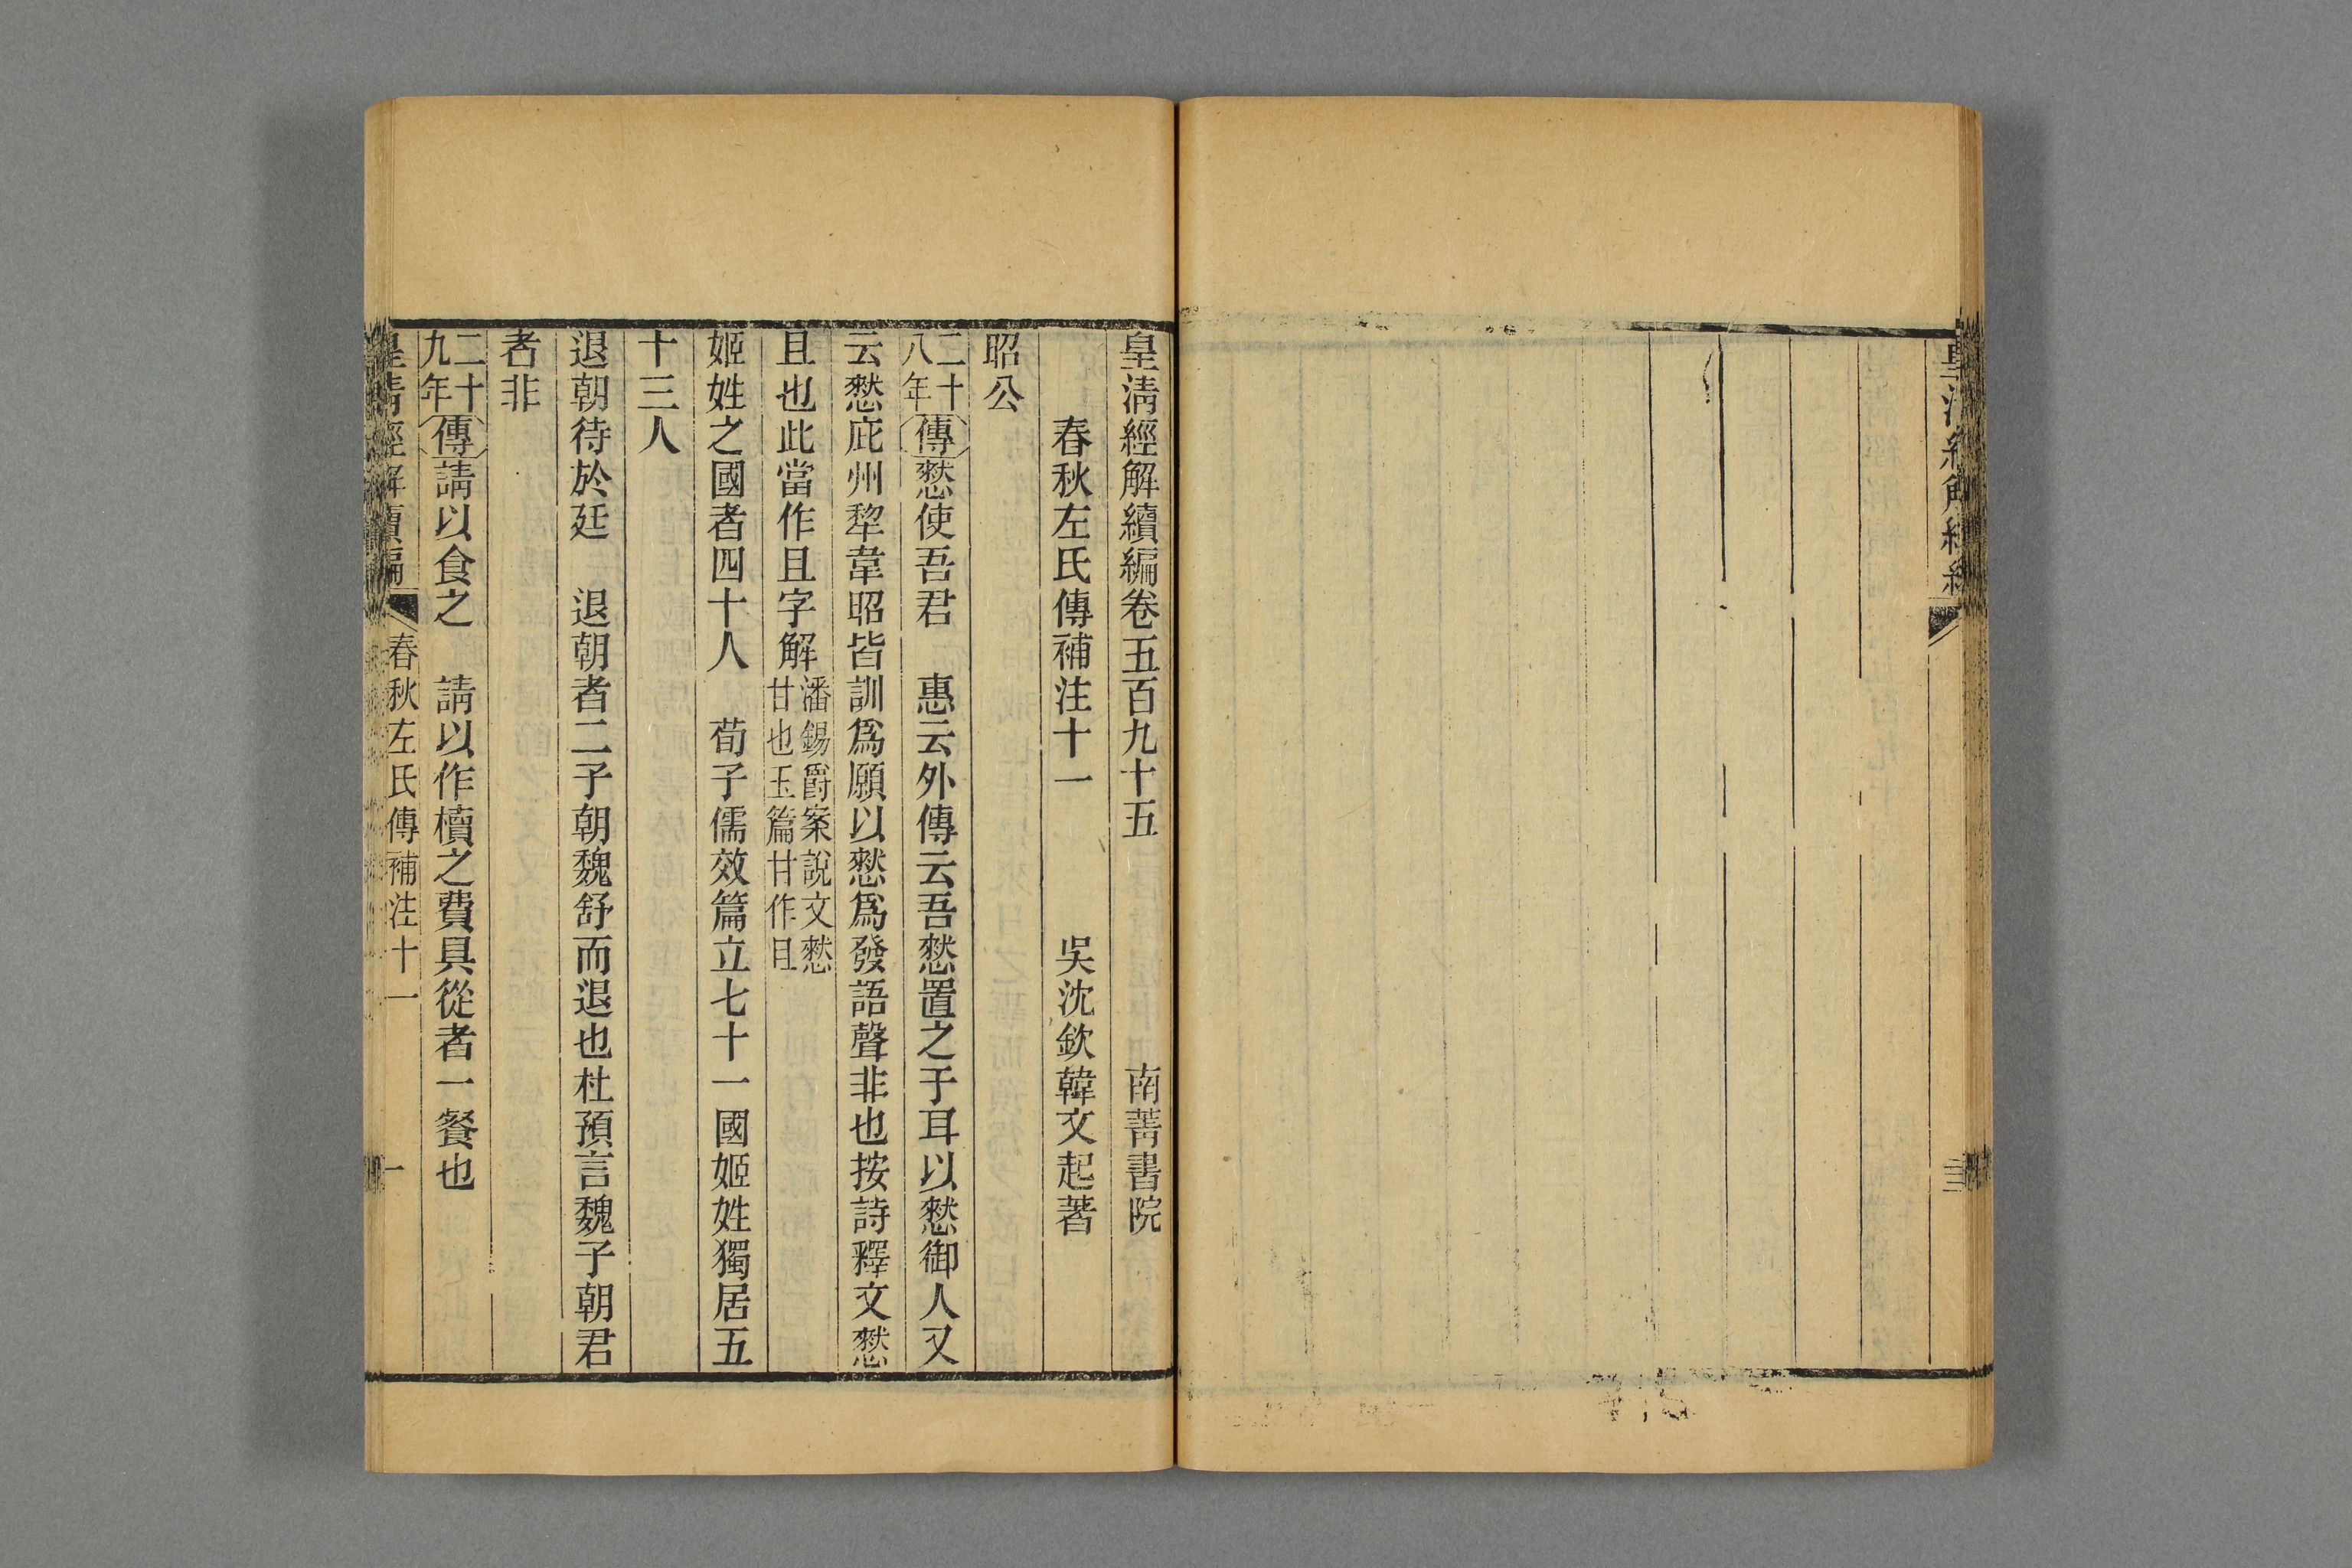 皇清經解續編
三
皇清經解續編卷五百九十五　南菁書院
春秋左氏傳補注十一　吳沈欽韓文起著
昭公
二十八年傳憖使吾君　惠云外傳云吾憖置之于耳以憖御人又
云憖庇州犂韋昭皆訓爲願以憖爲發語聲非也按詩釋文憖
且也此當作且字解潘錫爵案說文憖甘也玉篇甘作且
姬姓之國者四十人　荀子儒效篇立七十一國姬姓獨居五
十三人
退朝待於廷　退朝者二子朝魏舒而退也杜預言魏子朝君
者非
二十九年傳請以食之　請以作櫝之費具從者一餐也
皇清經解續編　春秋左氏傳補注十一　一